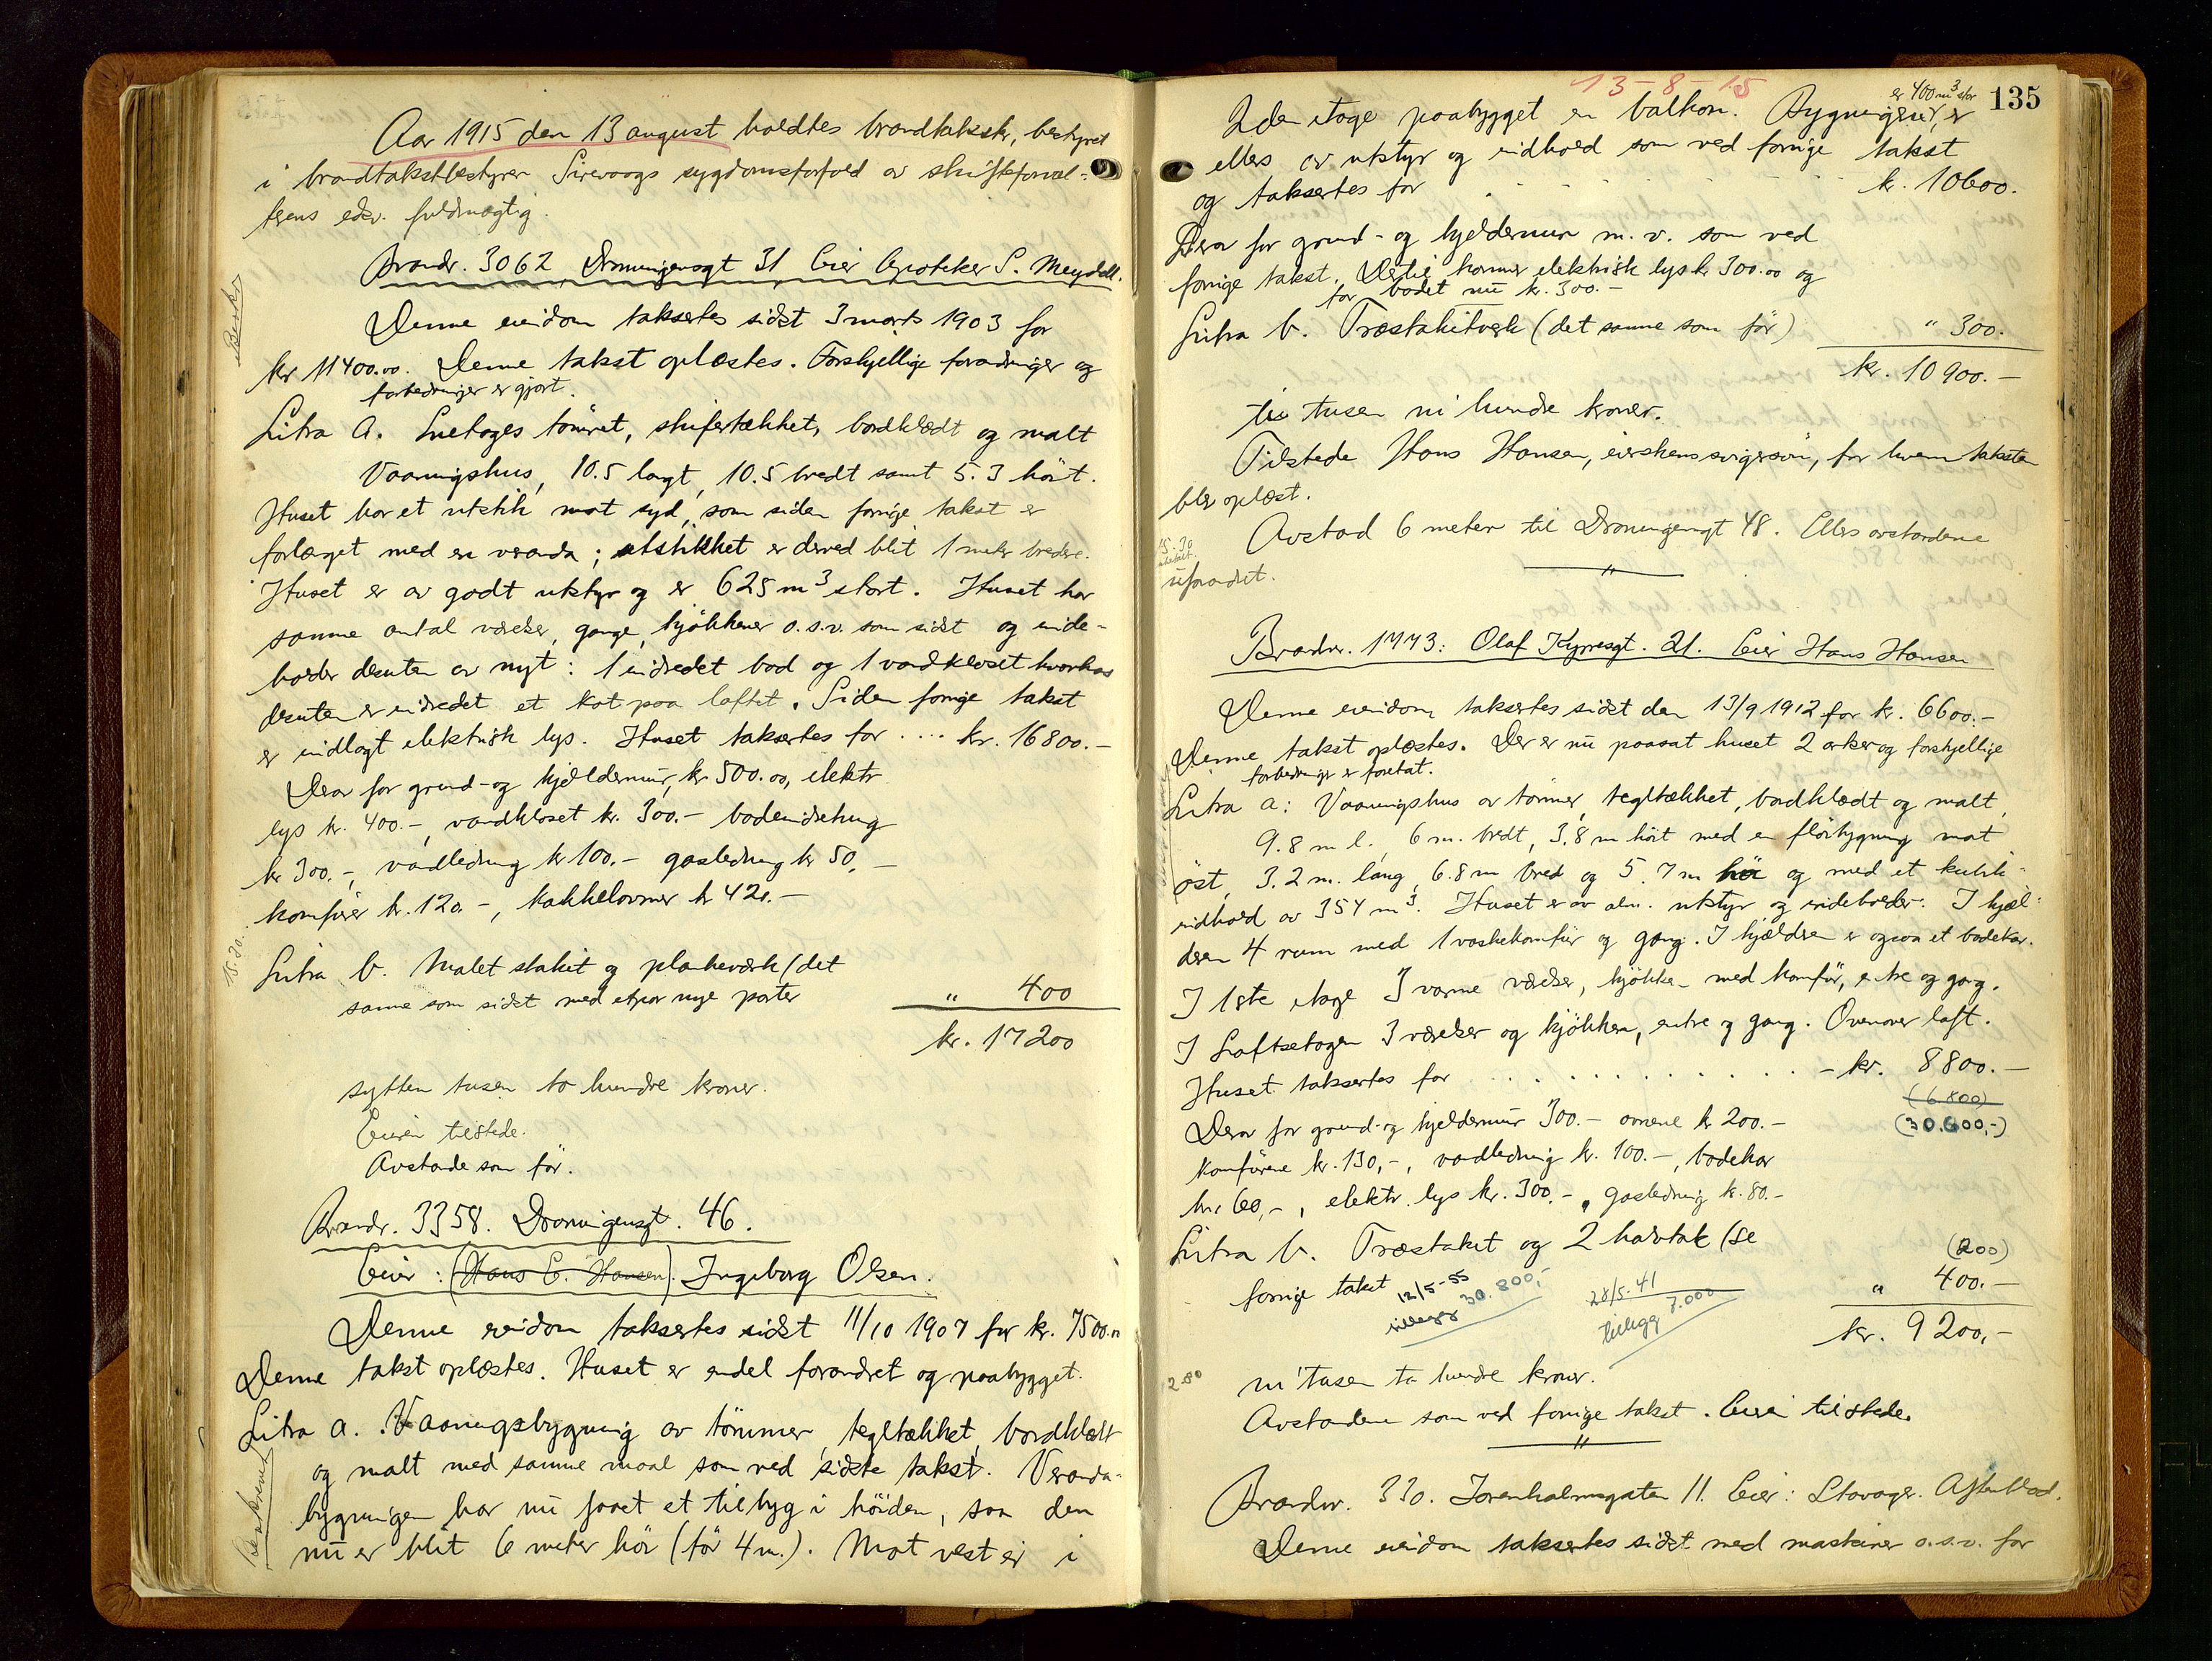 Aar 1915 den 13 august holdtes brandtakster, bestyret
i brandtakstbestyrer Sirevaags sygdomsforfald av skifteforval-
terens edsv. fuldmægtig.
Brandr. 3062 Dronningensgt 31 Eier Apoteker S. Meydell.
Denne eiendom takseres sidst 3 marts 1903 for
kr 11400.00. Denne takst oplæstes. Forskjellige forandringer og
forbedringer er gjort.
Litra A. Enetages tømret, skifertækket, bordklædt og malt
Vaaningshus, 10.5 langt, 10.5 bredt samt 5.3 høit.
Huset har et utstik mot syd, som siden forrige takst er
forlænget med en veranda; utstikket er derved blit 1 meter bredere.
Huset er av godt utstyr og er 625 m³ stort. Huset har
samme antal værelser, gange, kjøkkener o.s.v. som sidst og inde-
holder desuten av nyt: 1 indredet bad og 1 vandkloset hvorhos
desuten er indredet et kot paa loftet. Siden forrige takst
er indlagt elektrisk lys. Huset takseres for .... kr. 16800.-
Derav for grund- og kjældermur, kr 500.00, elektr
lys kr. 400.-, vandkloset kr. 300.- badeindretning
kr 300.-, vandledning kr 100.- gasledning kr 50.-
komfurer kr. 120.-, kakkelovner kr 420.-
15.30.
Litra b. Malet stakit og plankeværk (det
samme som sidst med et par nye porter " 400
kr. 17200
sytten tusen to hundre kroner.
Eieren tilstede.
Avstande som før.
Brandr. 3358. Dronningensgt. 46.
Eier: (Hans E. Hansen). Ingeborg Olsen.
Denne eiendom takseres sidst 11/10 1907 for kr. 7500.00
Denne takst oplæstes. Huset er endel forandret og paabygget.
Litra a. Vaaningsbygning av tømmer, tegltækket, bordklædt
og malt med samme maal som ved sidste takst. Veranda-
bygningen har nu faaet et tilbyg i høiden, saa den
nu er blit 6 meter høi (før 4 m.). Mot vest er i
13-8-15
135
er 400 m³ stor
2den etage paabygget en balkon. Bygningen er
ellers av utstyr og indhold som ved forrige takst
og takseres for . . . . . kr. 10600.
Derav for grund- og kjeldermur m.v. som ved
forrige takst. Dertil kommer elektrisk lys kr 300.00 og
for badet nu kr. 300.-
Litra b. Træstakitverk (det samme som før) " 300.
kr. 10900.-
ti tusen ni hundre kroner.
Tilstede Hans Hansen, eierskens svigersøn, for hvem taksten
blev oplæst.
Avstand 6 meter til Dronningensgt 48. Ellers avstandene
uforandret.
15.30
Brandnr. 1773: Olaf Kyrresgt. 21. Eier Hans Hansen
Denne eiendom takseres sidst den 13/9 1912 for kr. 6600.-
Denne takst oplæstes. Der er nu paasat huset 2 arker og forskjellige
forbedringer er foretat.
Litra a: Vaaningshus av tømmer, tegltækket, bordklædt og malt,
9.8 m l. 6 m. bredt, 3.8 m høit med en fløibygning mot
øst, 3.2 m. lang, 6.8 m bred og 5.7 m høi og med et kubik-
indhold av 354 m³. Huset er av alm. utstyr og indeholder: I kjæl-
deren 4 rum med 1 vaskekomfur og gang. I kjælderen er ogsaa et badekar.
I 1ste etage 3 varme værelser, kjøkken med komfur, entre og gang.
I Loftsetagen 3 værelser og kjøkken, entre og gang. Ovenover loft.
Huset takseres for . . . . . . . - kr. 8800.-
(6800)
(30.600,-)
Derav for grund- og kjeldermur 300.- ovnene kr 200.-
komfurene kr. 130,-, vandledning kr. 100.-, badekar
kr. 60,-, elektr. lys kr. 300.-, gasledning kr. 80.-
Litra b. Træstakit og 2 halvtak (se (200)
forrige takst " 400.-
12/5-55 tillegg 30.800,-
28/5.41 tillegg 7.000
kr. 9200,-
12.80
ni tusen to hundre kroner.
Avstandene som ved forrige takst. Eieren tilstede.
Brandnr. 330. Jorenholmsgaten 11. Eier: Stavanger Aftenblad.
Denne eiendom takseres sidst med maskiner o.s.v. for